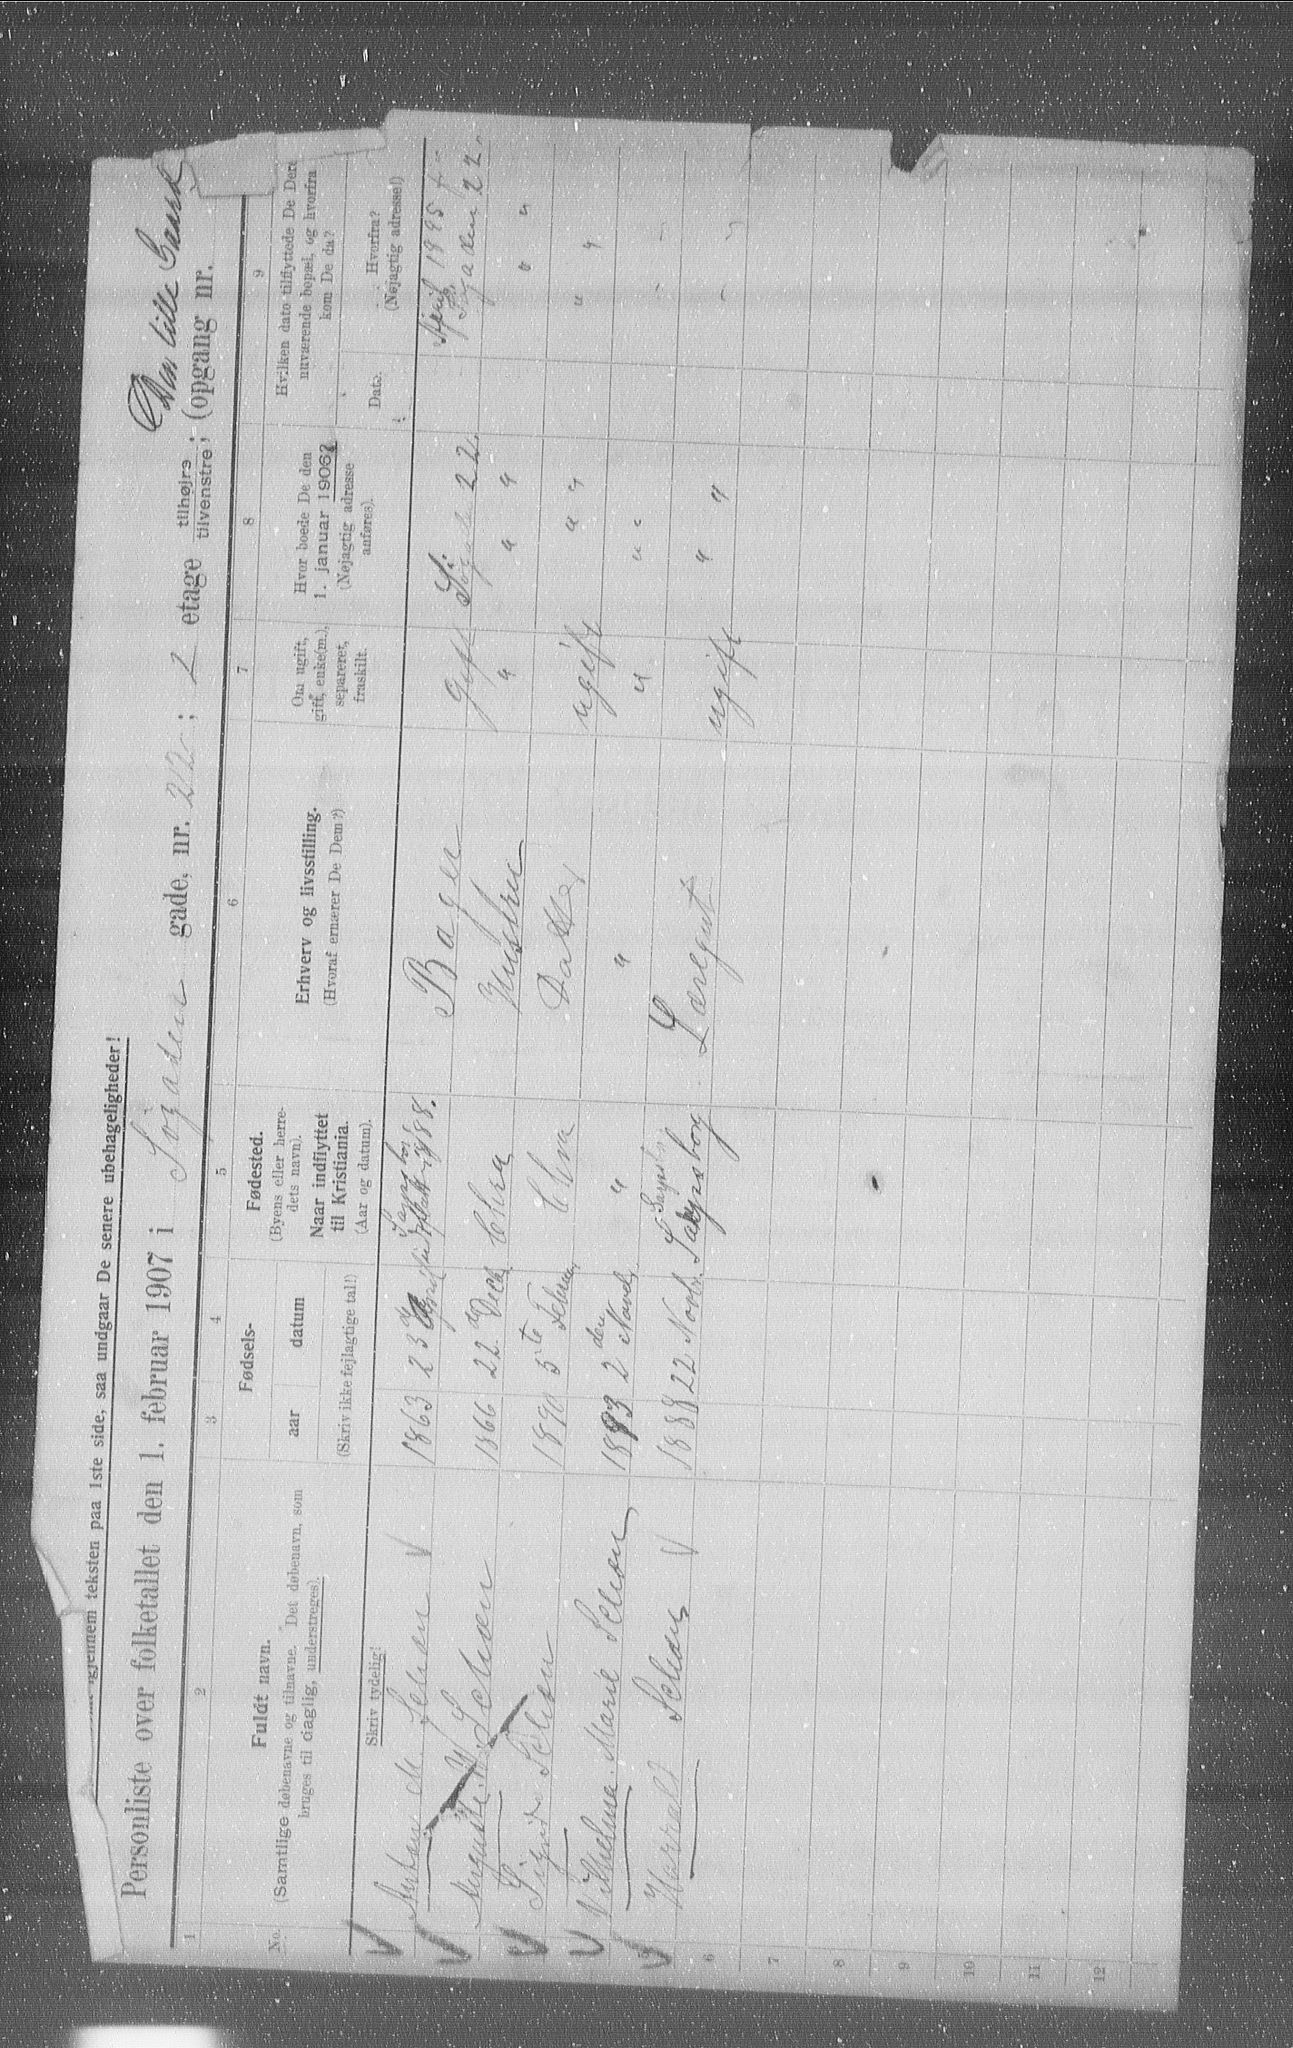 igjennem teksten paa 1ste side, saa undgaar De senere ubehageligheder!
Den lille Gaard
Personliste over folketallet den 1. februar 1907 i Søgadens gade, nr. 22; 2 etage tilhøjre tilvenstre; (opgang nr.
1 2 3 4 5 6 7 8 9
No. Fuldt navn. (Samtlige døbenavne og tilnavne. Det døbenavn, som bruges til daglig, understreges).
Fødsels- aar datum
Fødested. (Byens eller herredets navn). Naar indflyttet til Kristiania. (Aar og datum).
Erhverv og livsstilling. (Hvoraf ernærer De Dem?)
Om ugift, gift, enke(m.), separeret, fraskilt.
Hvor boede De den 1. januar 1906? (Nøjagtig adresse anføres).
Hvilken dato tilflyttede De Deres nuværende bopæl, og hvorfra kom De da?
Skriv tydelig! (Skriv ikke fejlagtige tal!) Dato. Hvorfra? (Nøjagtig adresse!)
Anton M. Schøn 1863 23 1888. Bager gift Søgad 22. April 1895
Søgaden 22.
Auguste W Schøn 1866 22 de Decb. Chra Hustru " " " " "
Signe Schøn 1890 5te Februar Chra Datter ugift " " " "
Vilhelma Marie Schøn 1893 2 den Novb. " " " " "
Harrald Schøn 1888 22 Novb. Sarpsborg Læregut ugift " "
6
7
8
9
10
11
12